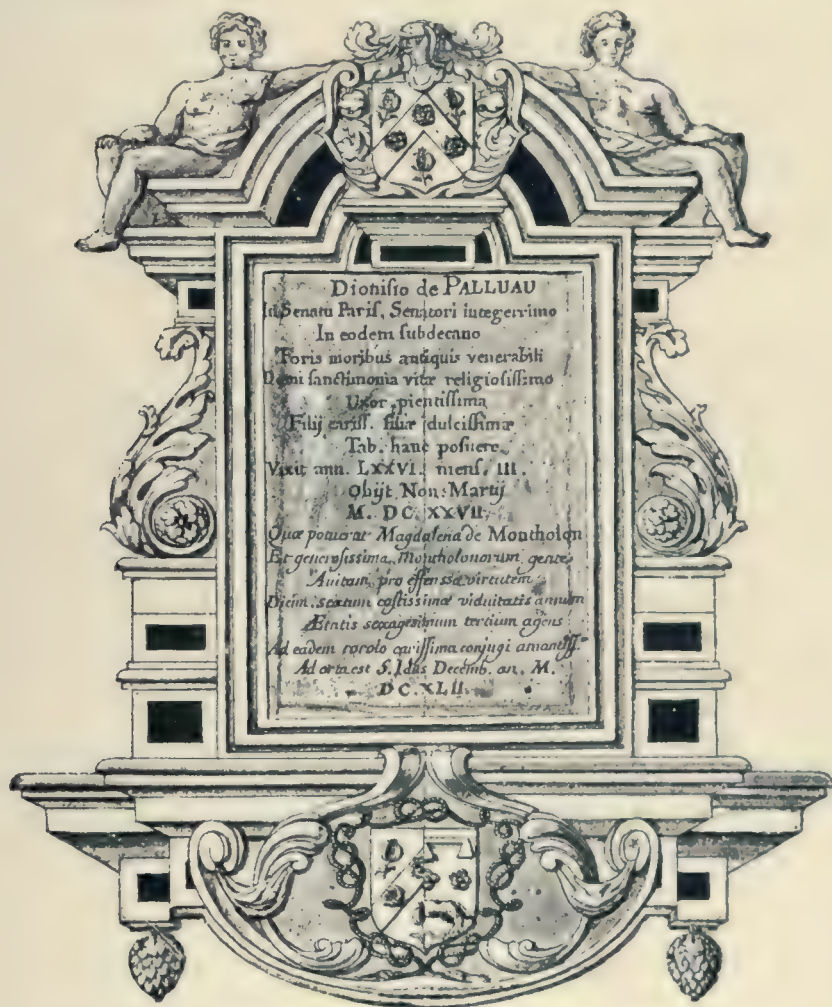 Dionisio de PALLUAU
In Senatu Paris, Senatori integerrimo
In eodem subdecano
Foris moribus antiquis venerabili
Domi sanctimonia vitæ religiosissimo
Uxor pientissima
Filij cariss. filiæ dulcissimæ
Tab. hanc posuere
Vixit ann. LXXVI. mens. III.
Obijt Non: Martij
M. DC. XXVII.
Quæ posuerat Magdalena de Montholon
Ex generosissima Montholonorum gente
Avitam pro effenssa virtutem
Decim. sextum castissimæ viduitatis annum
Ætatis sexagesimum tertium agens
Ad eadem carissima conjugi amantiss.
Ad orta est Idus Decemb. an. M.
DC. XLII.